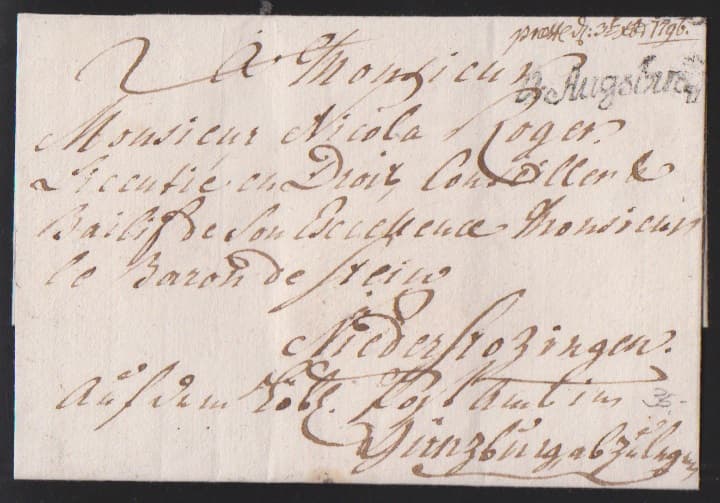 1796.
A Monsieur
R. Augsburg
Monsieur Nicola Roger.
Licentie en Droit, Conseiller &
Bailif de Son Excellence Monsieur
le Baron de Stein
à
Niederstozingen.
Auf dem Löbl. Post Amt in
Günzburg abzulegen
35.-